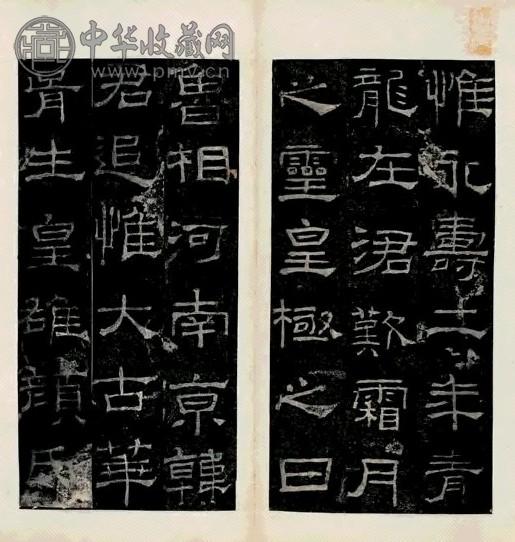 中华收藏网
www.pmv.cn
惟永壽二年青
龍在涒歎霜月
之靈皇極之日
魯相河南京韓
君追惟大古華
胥生皇雄顏氏